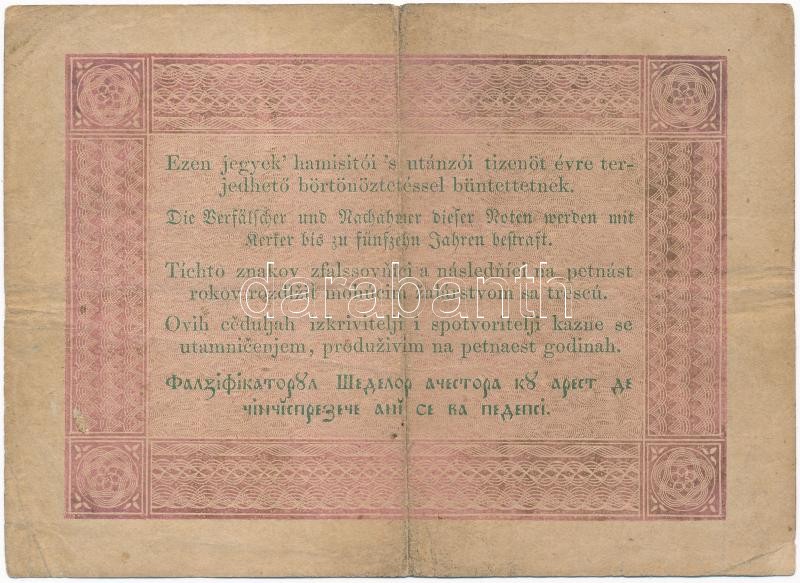 Ezen jegyek’ hamisitói ’s utánzói tizenöt évre ter-
jedhető börtönöztetéssel büntettetnek.
Die Verfälscher und Nachahmer dieser Noten werden mit
Kerker bis zu fünfzehn Jahren bestraft.
Tíchto znakov zfalssovňíci a následňíci na petnást
rokov rozdlžit mohúcim žalárstvom sa trescú.
Ovih cěduljah izkrivitelji i spotvoritelji kazne se
utamničenjem, produživim na petnaest godinah.
Фалꙁіфікаторꙋл Шеделор ачестора кꙋ арест де
чінчіспреꙁече ані се ва педепсі.
darabanth